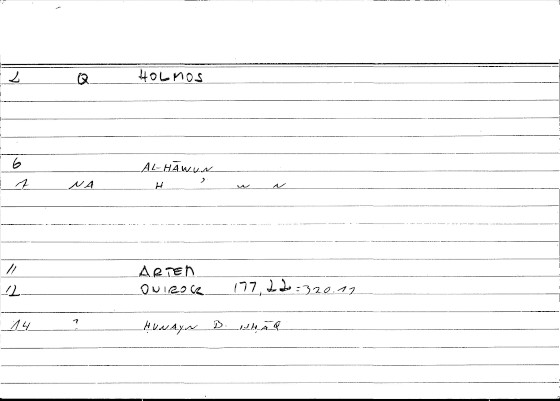 2 Q HOLMOS
6 AL-HĀWUN
1 NA H ʾ W N
11 ARTEM
12 QUIROCR 177,22 = 320.11
14 ? ḤUNAYN B. ISḤĀQ